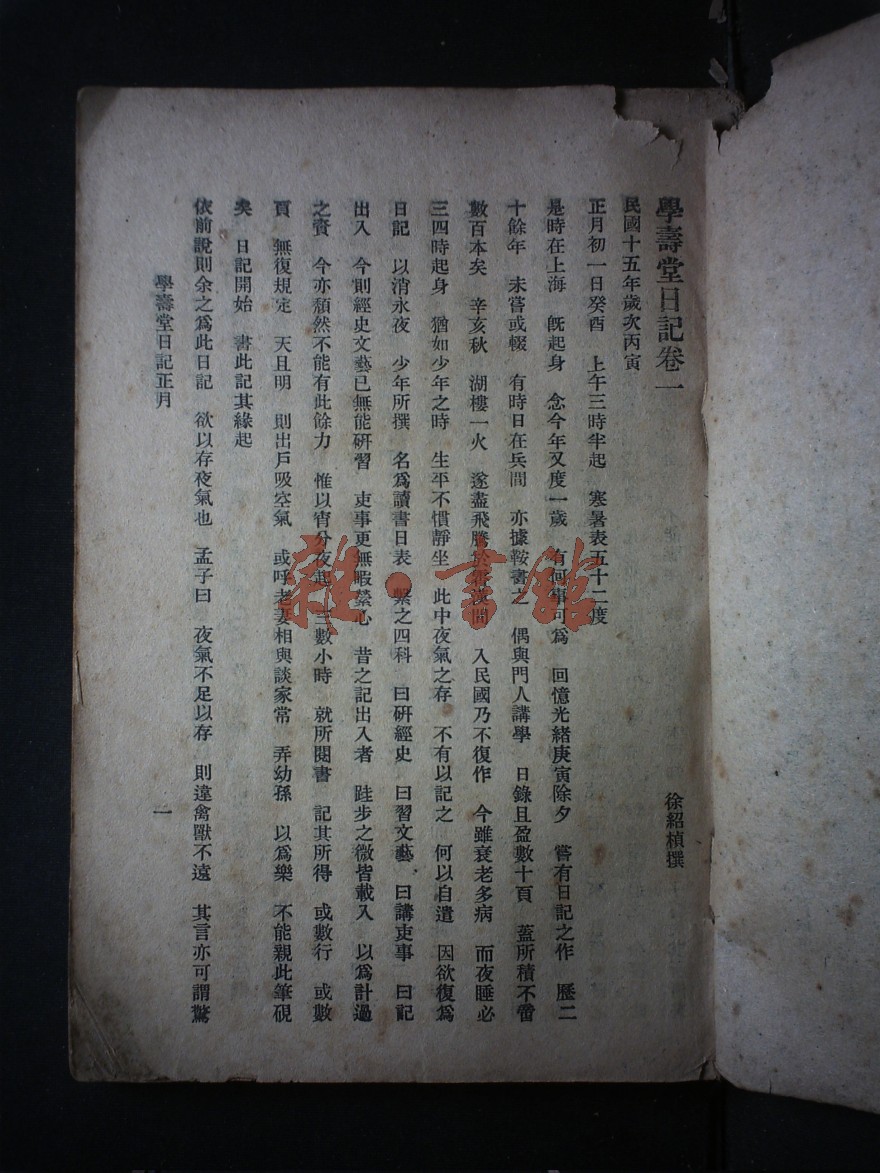 學壽堂日記卷一
徐紹楨撰
民國十五年歲次丙寅
正月初一日癸酉 上午三時半起 寒暑表五十二度
是時在上海 旣起身 念今年又度一歲 有何事可爲 回憶光緒庚寅除夕 嘗有日記之作 歷二
十餘年 未嘗或輟 有時日在兵間 亦據鞍書之 偶與門人講學 日錄且盈數十頁 蓋所積不啻
數百本矣 辛亥秋 湖樓一火 遂盡飛騰於霄漢間 入民國乃不復作 今雖衰老多病 而夜睡必
三四時起身 猶如少年之時 生平不慣靜坐 此中夜氣之存 不有以記之 何以自遣 因欲復爲
日記 以消永夜 少年所撰 名爲讀書日表 繫之四科 曰研經史 曰習文藝 曰講吏事 曰記
出入 今則經史文藝已無能研習 吏事更無暇縈心 昔之記出入者 跬步之微皆載入 以爲計過
之資 今亦頹然不能有此餘力 惟以宵分夜起 三數小時 就所閱書 記其所得 或數行 或數
頁 無復規定 天且明 則出戶吸空氣 或呼老妻相與談家常 弄幼孫 以爲樂 不能親此筆硯
矣 日記開始 書此記其緣起
依前說則余之爲此日記 欲以存夜氣也 孟子曰 夜氣不足以存 則違禽獸不遠 其言亦可謂驚
學壽堂日記正月
一
雜·書館